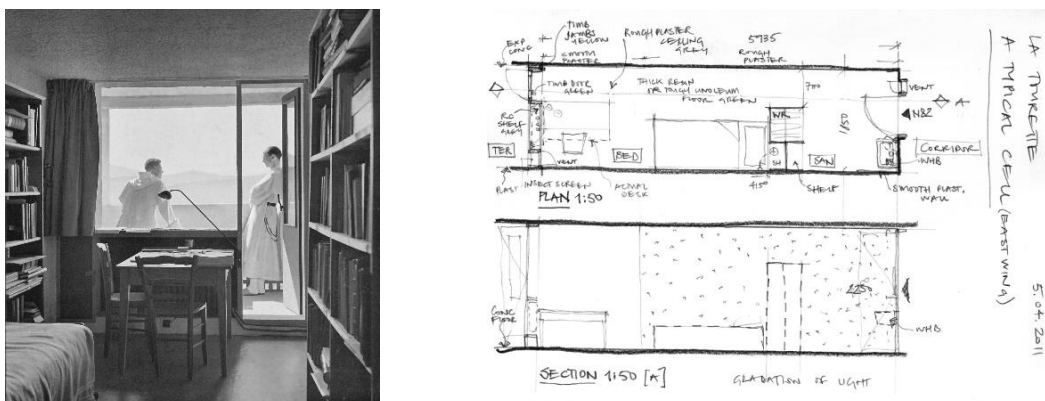 EXP
CONC
TIMB
JAMBS
YELLOW
SMOOTH
PLASTER
ROUGH PLASTER
CEILING
GREY
5935
ROUGH
PLASTER
TIMB DOOR
GREEN
THICK RESIN
OR TOUGH LINOLEUM
FLOOR GREEN
700
VENT
A
N82
RC
SHELF
GREY
WR
TER
VENT
BED
SH
A
SAN
CORRIDOR
WHB
INSECT SCREEN
4150
SHELF
SMOOTH PLAST.
WALL
PLAN 1:50
CONC
FLOOR
2260
WHB
SECTION 1:50 [A]
GRADATION OF LIGHT
LA TOURETTE
A TYPICAL CELL (EAST WING)
5.04.2011